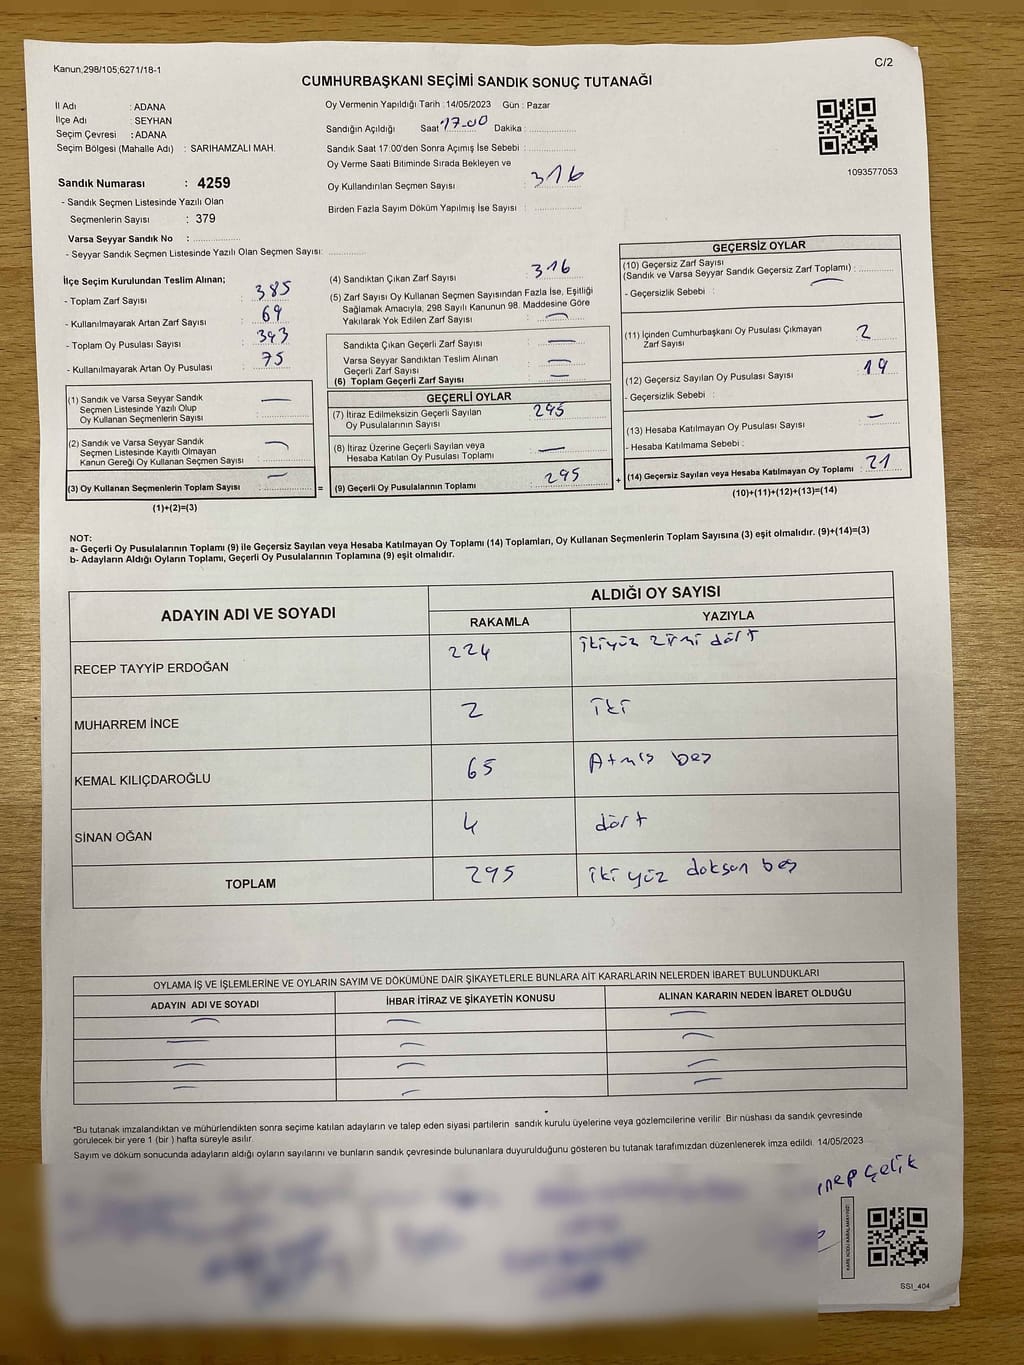 Kanun;298/105;6271/18-1
C/2
CUMHURBAŞKANI SEÇİMİ SANDIK SONUÇ TUTANAĞI
İl Adı : ADANA
İlçe Adı : SEYHAN
Seçim Çevresi : ADANA
Seçim Bölgesi (Mahalle Adı) : SARIHAMZALI MAH.
Sandık Numarası : 4259
- Sandık Seçmen Listesinde Yazılı Olan
Seçmenlerin Sayısı : 379
Varsa Seyyar Sandık No :
- Seyyar Sandık Seçmen Listesinde Yazılı Olan Seçmen Sayısı:
Oy Vermenin Yapıldığı Tarih : 14/05/2023 Gün : Pazar
Sandığın Açıldığı Saat 17.00 Dakika :
Sandık Saat 17:00'den Sonra Açımış İse Sebebi :
Oy Verme Saati Bitiminde Sırada Bekleyen ve
Oy Kullandırılan Seçmen Sayısı 316
Birden Fazla Sayım Döküm Yapılmış İse Sayısı :
1093577053
İlçe Seçim Kurulundan Teslim Alınan;
- Toplam Zarf Sayısı 385
- Kullanılmayarak Artan Zarf Sayısı 69
- Toplam Oy Pusulası Sayısı 393
- Kullanılmayarak Artan Oy Pusulası 75
(1) Sandık ve Varsa Seyyar Sandık
Seçmen Listesinde Yazılı Olup
Oy Kullanan Seçmenlerin Sayısı —
(2) Sandık ve Varsa Seyyar Sandık
Seçmen Listesinde Kayıtlı Olmayan
Kanun Gereği Oy Kullanan Seçmen Sayısı —
(3) Oy Kullanan Seçmenlerin Toplam Sayısı —
(1)+(2)=(3)
(4) Sandıktan Çıkan Zarf Sayısı 316
(5) Zarf Sayısı Oy Kullanan Seçmen Sayısından Fazla İse, Eşitliği
Sağlamak Amacıyla, 298 Sayılı Kanunun 98. Maddesine Göre
Yakılarak Yok Edilen Zarf Sayısı —
Sandıkta Çıkan Geçerli Zarf Sayısı —
Varsa Seyyar Sandıktan Teslim Alınan
Geçerli Zarf Sayısı —
(6) Toplam Geçerli Zarf Sayısı —
GEÇERLİ OYLAR
(7) İtiraz Edilmeksizin Geçerli Sayılan
Oy Pusulalarının Sayısı 295
(8) İtiraz Üzerine Geçerli Sayılan veya
Hesaba Katılan Oy Pusulası Toplamı —
= (9) Geçerli Oy Pusulalarının Toplamı 295 +
GEÇERSİZ OYLAR
(10) Geçersiz Zarf Sayısı
(Sandık ve Varsa Seyyar Sandık Geçersiz Zarf Toplamı) :
- Geçersizlik Sebebi : —
(11) İçinden Cumhurbaşkanı Oy Pusulası Çıkmayan
Zarf Sayısı 2
(12) Geçersiz Sayılan Oy Pusulası Sayısı 19
- Geçersizlik Sebebi :
(13) Hesaba Katılmayan Oy Pusulası Sayısı —
- Hesaba Katılmama Sebebi :
(14) Geçersiz Sayılan veya Hesaba Katılmayan Oy Toplamı 21
(10)+(11)+(12)+(13)=(14)
NOT:
a- Geçerli Oy Pusulalarının Toplamı (9) ile Geçersiz Sayılan veya Hesaba Katılmayan Oy Toplamı (14) Toplamları, Oy Kullanan Seçmenlerin Toplam Sayısına (3) eşit olmalıdır. (9)+(14)=(3)
b- Adayların Aldığı Oyların Toplamı, Geçerli Oy Pusulalarının Toplamına (9) eşit olmalıdır.
ADAYIN ADI VE SOYADI
ALDIĞI OY SAYISI
RAKAMLA YAZIYLA
RECEP TAYYİP ERDOĞAN 224 ikiyüz yirmi dört
MUHARREM İNCE 2 iki
KEMAL KILIÇDAROĞLU 65 Atmış beş
SİNAN OĞAN 4 dört
TOPLAM 295 iki yüz doksan beş
OYLAMA İŞ VE İŞLEMLERİNE VE OYLARIN SAYIM VE DÖKÜMÜNE DAİR ŞİKAYETLERLE BUNLARA AİT KARARLARIN NELERDEN İBARET BULUNDUKLARI
ADAYIN ADI VE SOYADI İHBAR İTİRAZ VE ŞİKAYETİN KONUSU ALINAN KARARIN NEDEN İBARET OLDUĞU
*Bu tutanak imzalandıktan ve mühürlendikten sonra seçime katılan adayların ve talep eden siyasi partilerin sandık kurulu üyelerine veya gözlemcilerine verilir. Bir nüshası da sandık çevresinde
görülecek bir yere 1 (bir) hafta süreyle asılır.
Sayım ve döküm sonucunda adayların aldığı oyların sayılarını ve bunların sandık çevresinde bulunanlara duyurulduğunu gösteren bu tutanak tarafımızdan düzenlenerek imza edildi. 14/05/2023
Çelik
KARE KODU KARALAMAYINIZ!
SSI_404